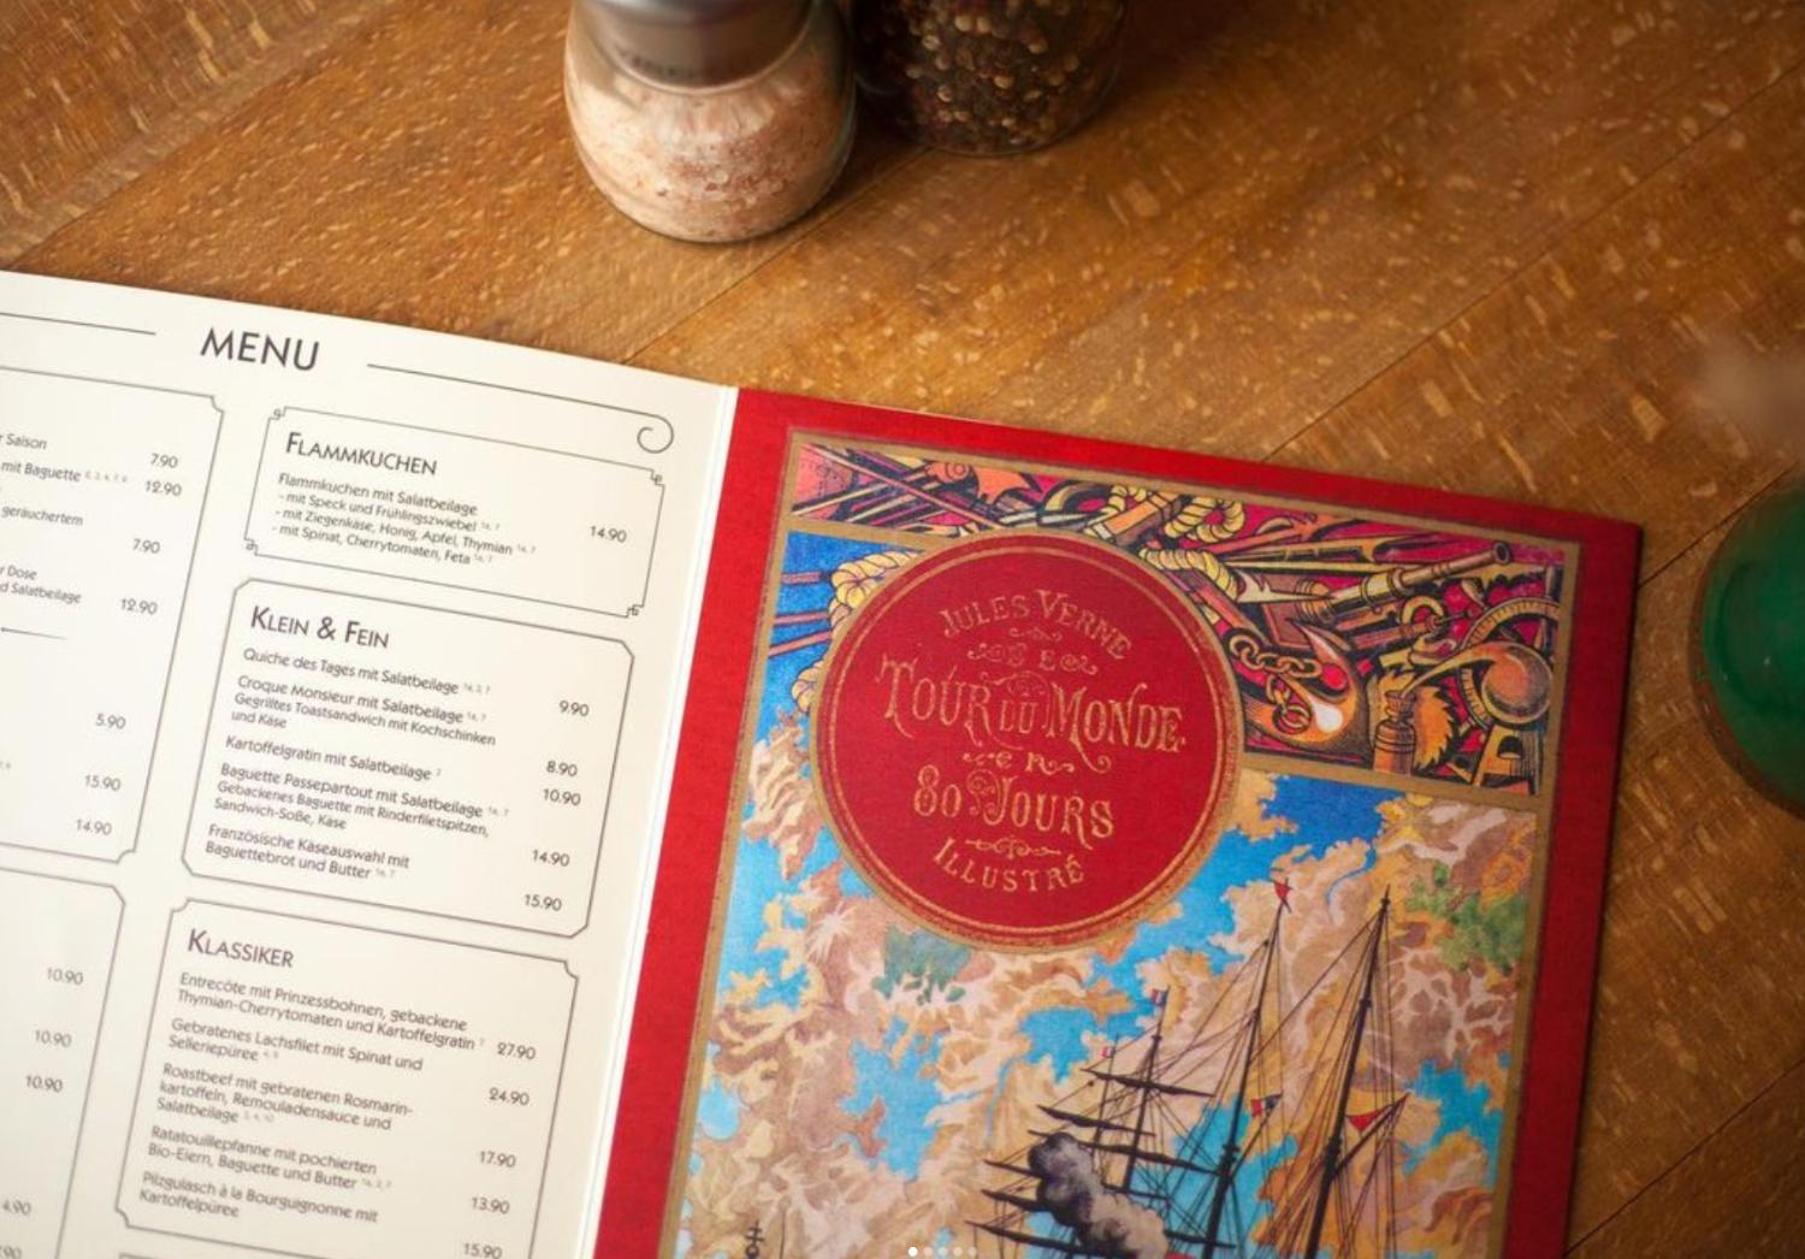 MENU
r Saison
7.90
mit Baguette
12.90
geräuchertem
7.90
r Dose
d Salatbeilage
12.90
5.90
15.90
14.90
10.90
10.90
10.90
4.90
FLAMMKUCHEN
Flammkuchen mit Salatbeilage
- mit Speck und Frühlingszwiebel 1a, 7
- mit Ziegenkäse, Honig, Apfel, Thymian 1a, 7
14.90
- mit Spinat, Cherrytomaten, Feta 1a, 7
KLEIN & FEIN
Quiche des Tages mit Salatbeilage 1a, 3, 7
9.90
Croque Monsieur mit Salatbeilage 1a, 7
Gegrilltes Toastsandwich mit Kochschinken
und Käse
8.90
Kartoffelgratin mit Salatbeilage 7
10.90
Baguette Passepartout mit Salatbeilage 1a, 7
Gebackenes Baguette mit Rinderfiletspitzen,
Sandwich-Soße, Käse
14.90
Französische Käseauswahl mit
Baguettebrot und Butter 1a, 7
15.90
KLASSIKER
Entrecôte mit Prinzessbohnen, gebackene
Thymian-Cherrytomaten und Kartoffelgratin 7
27.90
Gebratenes Lachsfilet mit Spinat und
Selleriepüree
24.90
Roastbeef mit gebratenen Rosmarin-
kartoffeln, Remouladensauce und
Salatbeilage
17.90
Ratatouillepfanne mit pochierten
Bio-Eiern, Baguette und Butter 1a, 3, 7
13.90
Pilzgulasch à la Bourguignonne mit
Kartoffelpüree
15.90
JULES VERNE
LE
TOUR DU MONDE
EN
80 JOURS
ILLUSTRÉ